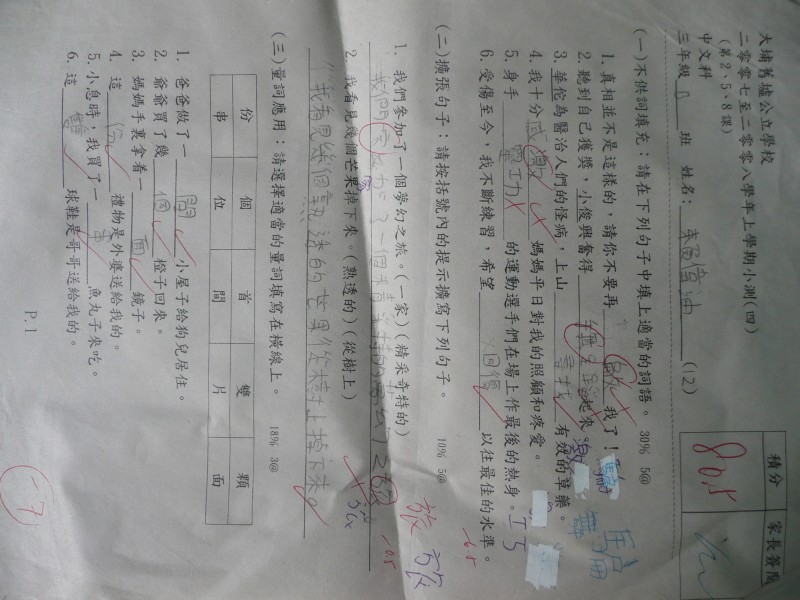 大埔舊墟公立學校
二零零七至二零零八學年上學期小測(四)
(第2、5、8課)
中文科
三年級 班 姓名: (12)
積分 家長簽閱
80.5
(一)不供詞填充:請在下列句子中填上適當的詞語。 30% 5@
1. 真相並不是這樣的,請你不要再 我了!
2. 聽到自己獲獎,小俊興奮得 起來。
3. 華佗為醫治人們的怪病,上山 尋找 有效的草藥。
4. 我十分 感激 媽媽平日對我的照顧和疼愛。
5. 身手 的運動選手們在場上作最後的熱身。
6. 受傷至今,我不斷練習,希望 回復 以往最佳的水準。
-6.5
(二)擴張句子:請按括號內的提示擴寫下列句子。 10% 5@
1. 我們參加了一個夢幻之旅。(一家)(精采奇特的)
旅
-0.5
2. 我看見幾個芒果掉下來。(熟透的)(從樹上)
我看見幾個熟透的芒果從樹上掉下來。
(三)量詞應用:請選擇適當的量詞填寫在橫線上。 18% 3@
份 個 首 雙 顆
串 位 間 片 面
1. 爸爸做了一 間 小屋子給狗兒居住。
2. 爺爺買了幾 個 橙子回來。
3. 媽媽手裏拿着一 面 鏡子。
4. 這 份 禮物是外婆送給我的。
5. 小息時,我買了一 串 魚丸子來吃。
6. 這 雙 球鞋是哥哥送給我的。
P.1
-7